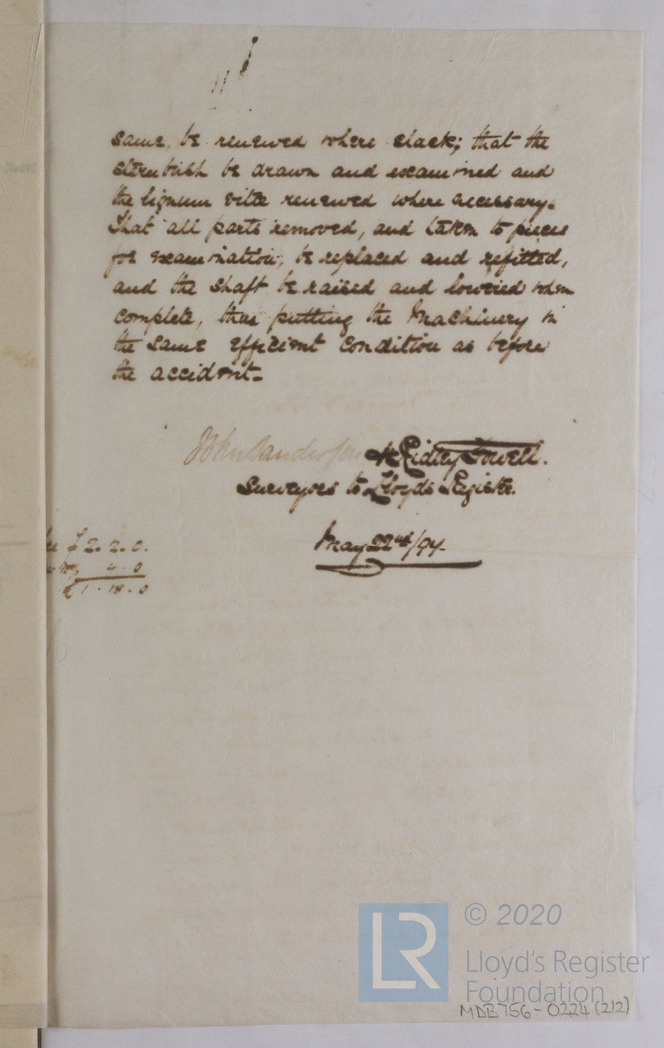 same, be renewed where slack; that the
sternbush be drawn and examined and
the lignum vitæ renewed where necessary.
That all parts removed, and taken to pieces
for examination, be replaced and refitted,
and the shaft be raised and lowered when
complete, thus putting the Machinery in
the same efficient condition as before
the accident.
John Sanderson H. Ridley Towell.
Surveyors to Lloyds Register.
May 22nd/94.
£2. 2. 0.
4. 0
£1. 18. 0
LR
© 2020
Lloyd's Register
Foundation
MDB756-0224 (2/2)